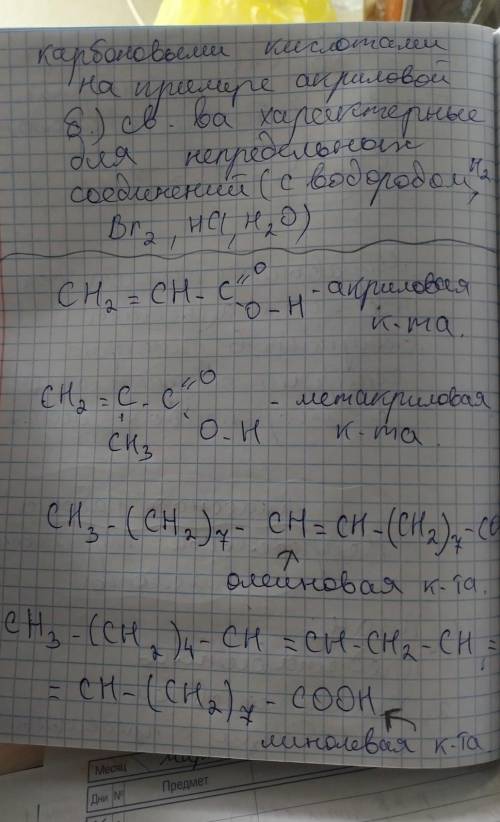 карбоновыми кислотами
на примере акриловой
б.) св-ва характерные
для непредельных
соединений (с водородом, H₂
Br₂, HCl, H₂O)
CH₂ = CH - C =O
O - H - акриловая
к-та.
CH₂ = C - C =O - метакриловая
CH₃ O - H к-та.
CH₃ - (CH₂)₇ - CH = CH - (CH₂)₇ - CO
олеиновая к-та.
CH₃ - (CH₂)₄ - CH = CH - CH₂ - CH =
= CH - (CH₂)₇ - COOH
линолевая к-та
Месяц
Дни № Предмет